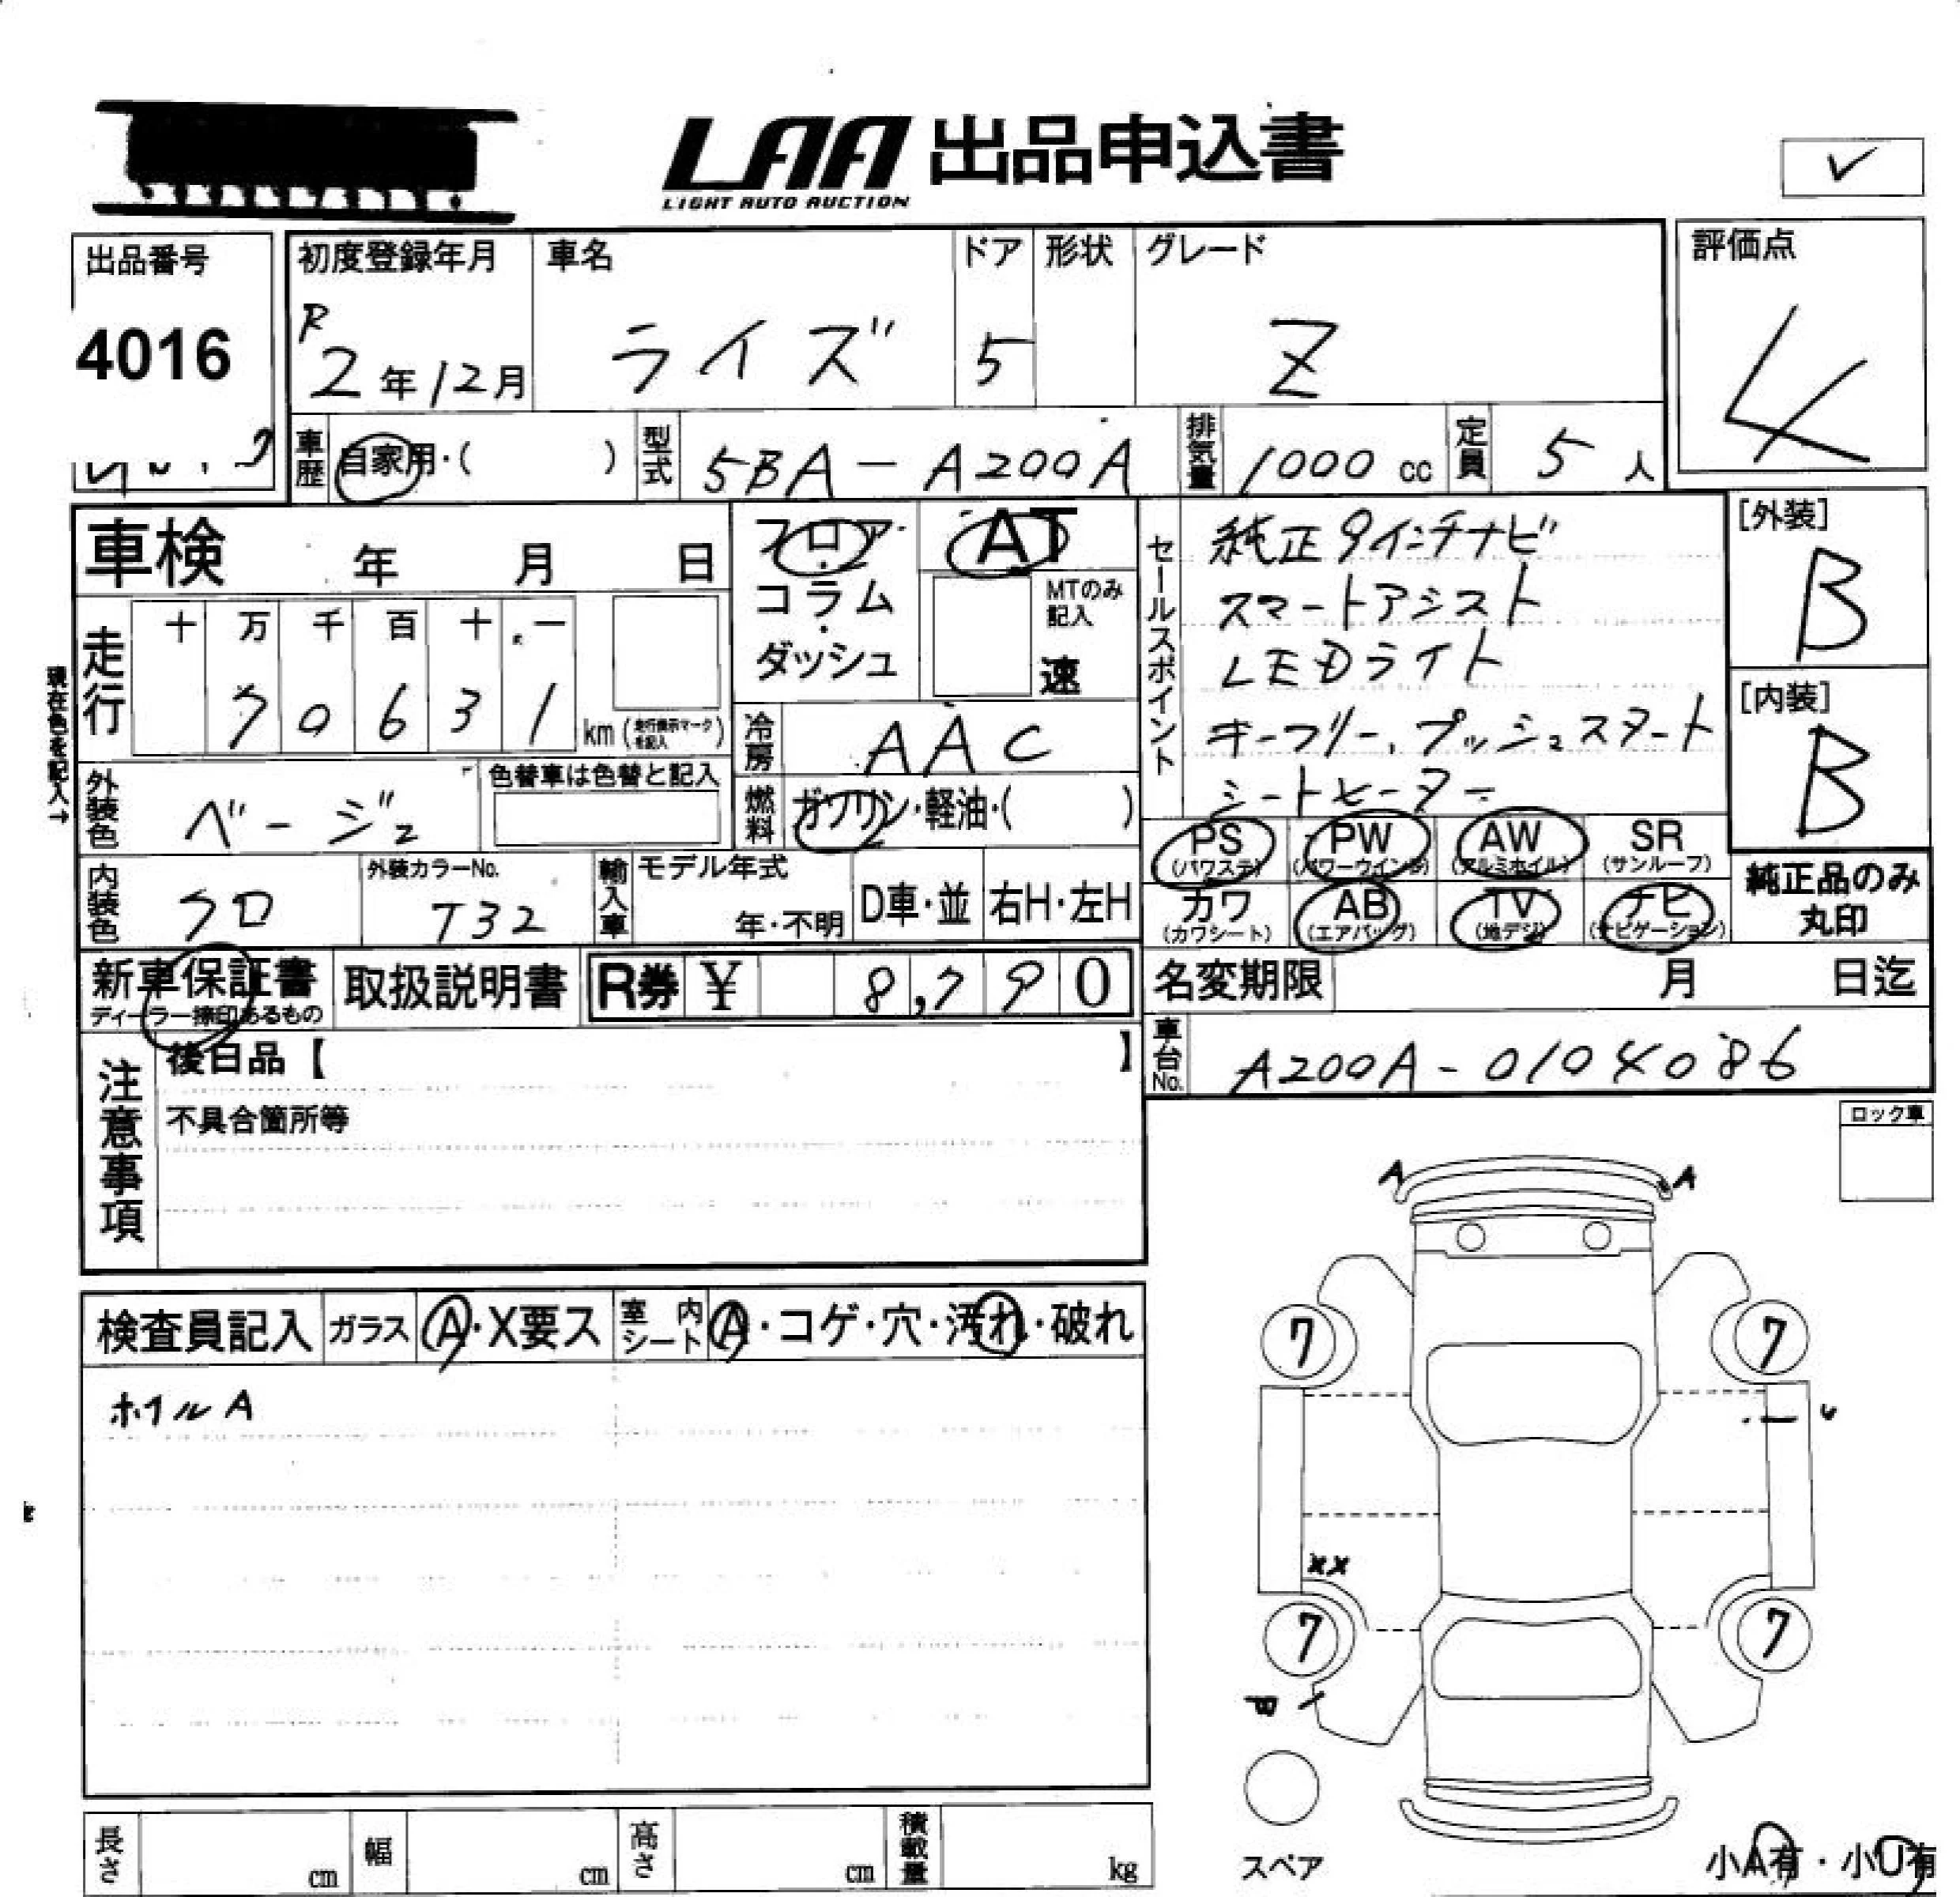 LAA 出品申込書
LIGHT AUTO AUCTION
✓
出品番号
4016
初度登録年月
R
2年12月
車名
ライズ
ドア
5
形状
グレード
Z
評価点
4
車歴
自家用・( )
型式
5BA-A200A
排気量
1000 cc
定員
5人
車検 年 月 日
フロア・
コラム・
ダッシュ
AT
MTのみ記入
速
セールスポイント
純正9インチナビ
スマートアシスト
LEDライト
キーフリー、プッシュスタート
シートヒーター
[外装]
B
[内装]
B
現在色を記入→
走行
十 万 千 百 十 一
7 0 6 3 1 km (走行表示マークを記入)
冷房
AAC
外装色
ベージュ
色替車は色替と記入
燃料
ガソリン・軽油・( )
PS (パワステ)
PW (パワーウインド)
AW (アルミホイル)
SR (サンルーフ)
内装色
クロ
外装カラーNo.
T32
輸入車
モデル年式
年・不明
D車・並
右H・左H
カワ (カワシート)
AB (エアバッグ)
TV (地デジ)
ナビ (ナビゲーション)
純正品のみ
丸印
新車保証書
ディーラー捺印あるもの
取扱説明書
R券 ¥ 8,790
名変期限 月 日迄
車台No.
A200A-0104086
注意事項
後日品【 】
不具合箇所等
ロック車
A A
検査員記入
ガラス
A・X要ス
室内シート
A・コゲ・穴・汚れ・破れ
ホイルA
7 7
U
XX
7 7
スペア
小A有・小U有
長さ cm
幅 cm
高さ cm
積載量 kg